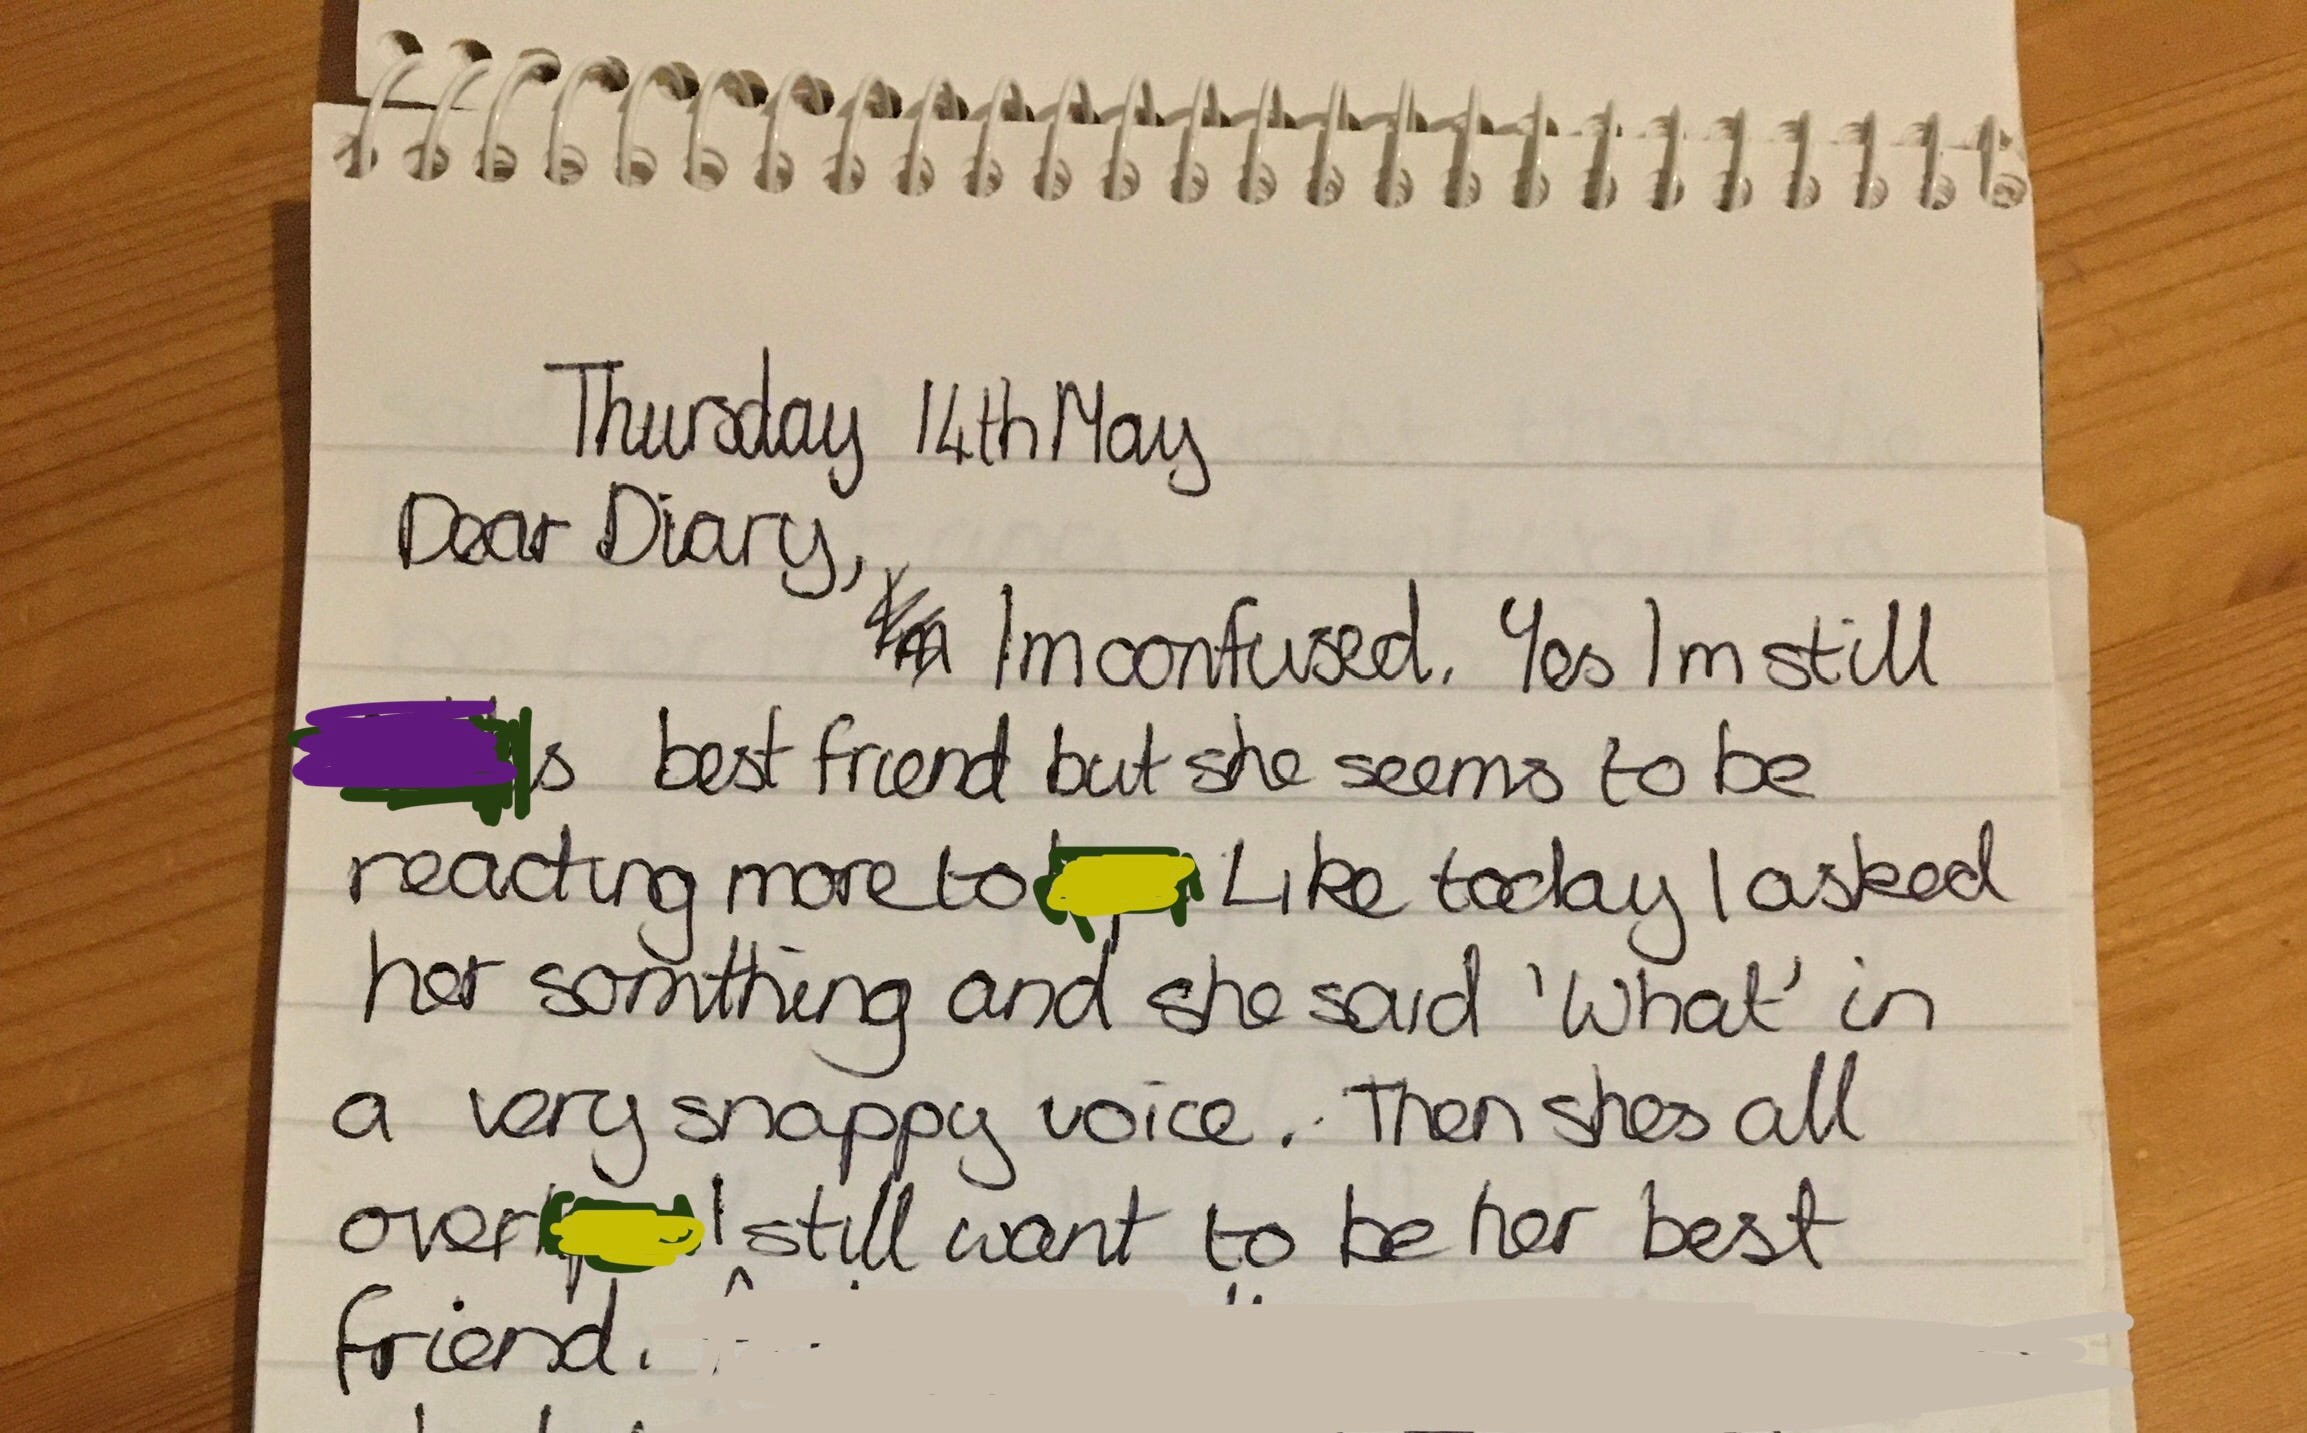 Thursday 14th May
Dear Diary,
Im confused. Yes Im still
s best friend but she seems to be
reacting more to Like today I asked
her somthing and she said 'What' in
a very snappy voice. Then shes all
over I still want to be her best
friend.